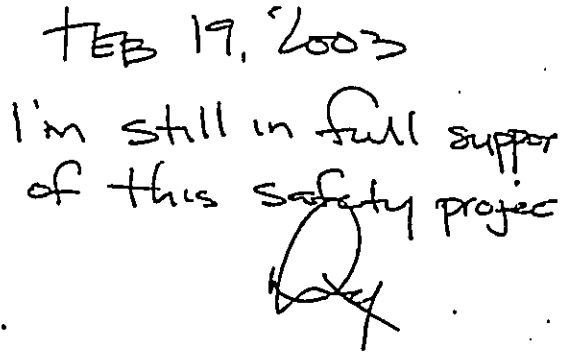 FEB 19, 2003
I'm still in full suppor
of this safety projec